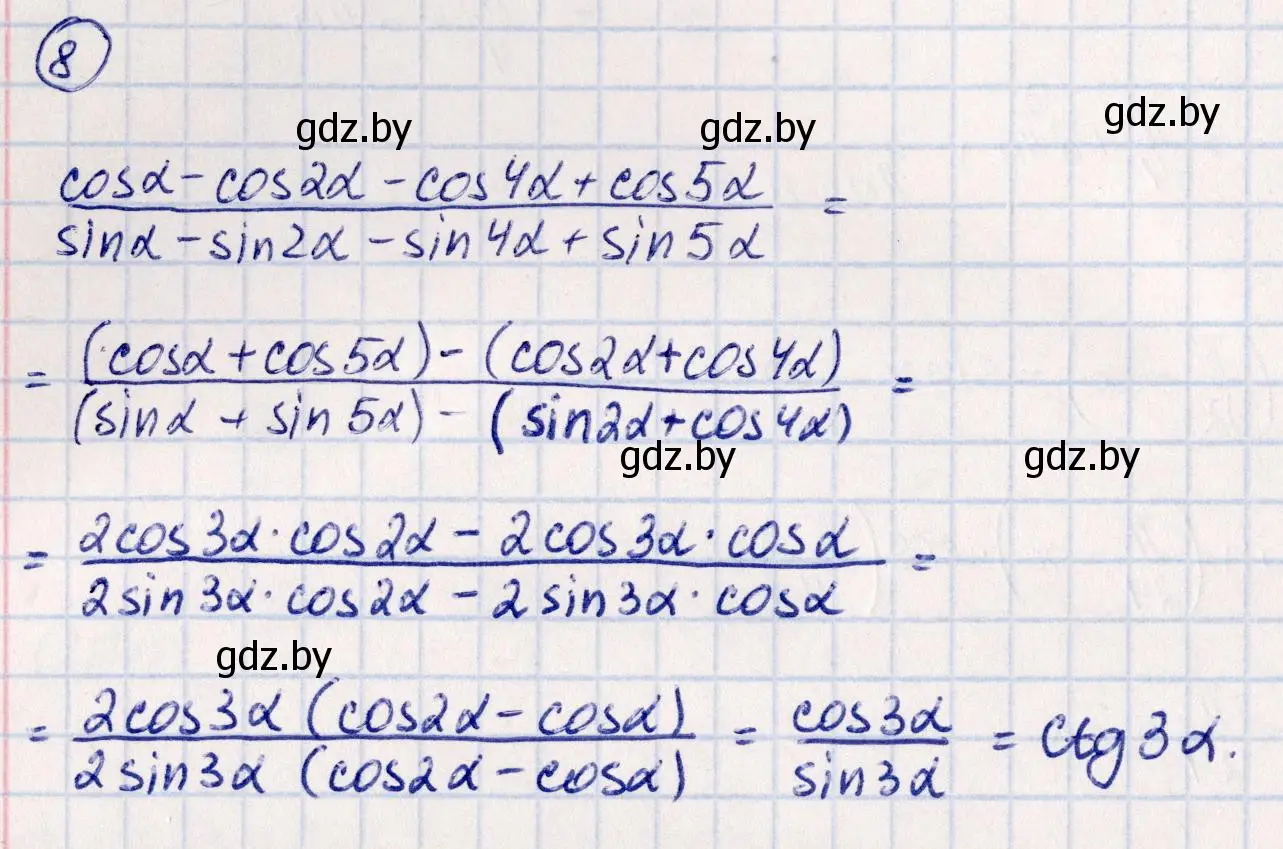 8
gdz.by gdz.by gdz.by
cosα - cos2α - cos4α + cos5α
sinα - sin2α - sin4α + sin5α =
= (cosα + cos5α) - (cos2α + cos4α)
(sinα + sin5α) - (sin2α + cos4α) =
gdz.by gdz.by
= 2cos3α · cos2α - 2cos3α · cosα
2sin3α · cos2α - 2sin3α · cosα =
gdz.by
= 2cos3α (cos2α - cosα) = cos3α = ctg3α.
2sin3α (cos2α - cosα) sin3α